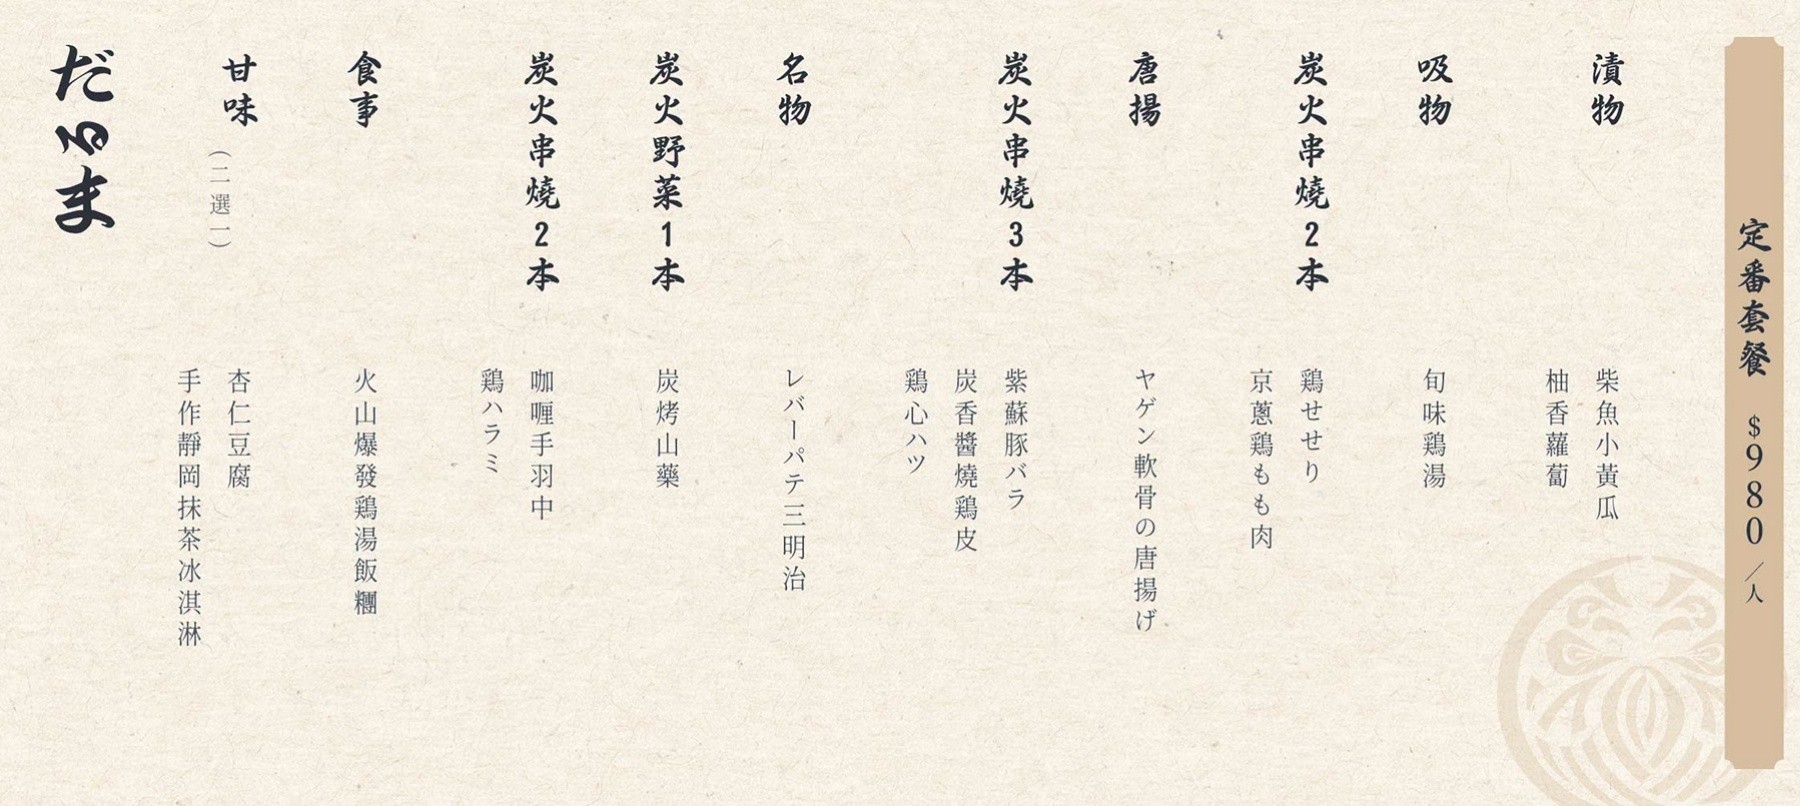 定番套餐 $980／人
漬物
柴魚小黃瓜
柚香蘿蔔
吸物
旬味鶏湯
炭火串燒2本
鶏せせり
京蔥鶏もも肉
唐揚
ヤゲン軟骨の唐揚げ
炭火串燒3本
紫蘇豚バラ
炭香醬燒鶏皮
鶏心ハツ
名物
レバーパテ三明治
炭火野菜1本
炭烤山藥
炭火串燒2本
咖喱手羽中
鶏ハラミ
食事
火山爆發鶏湯飯糰
甘味
（二選一）
杏仁豆腐
手作靜岡抹茶冰淇淋
だるま